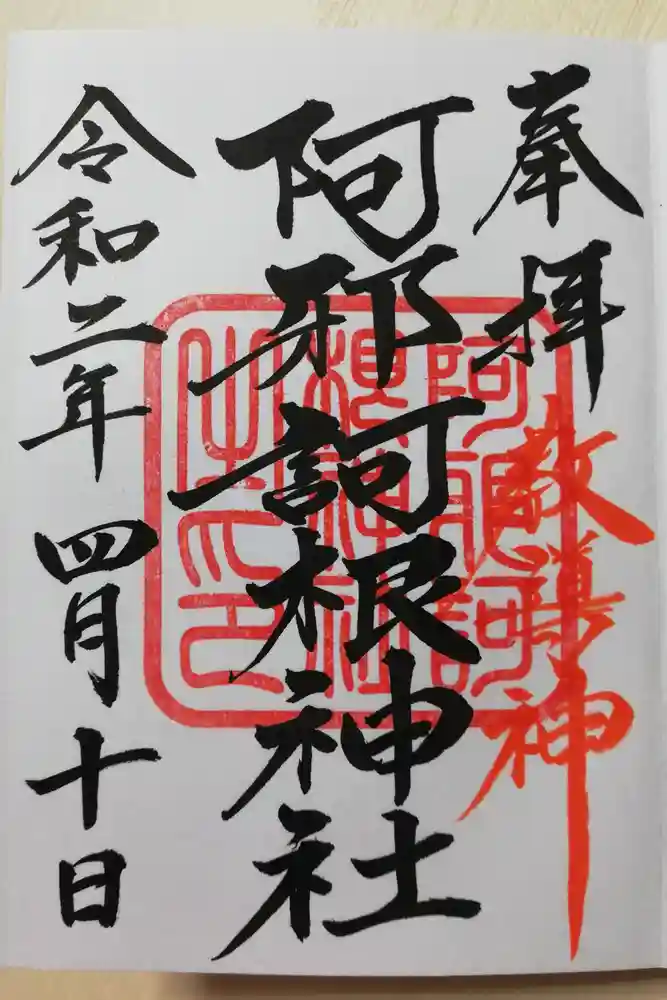 奉拝
教導神
阿邪訶根神社
阿邪訶
根神社
之印
令和二年 四月 十日